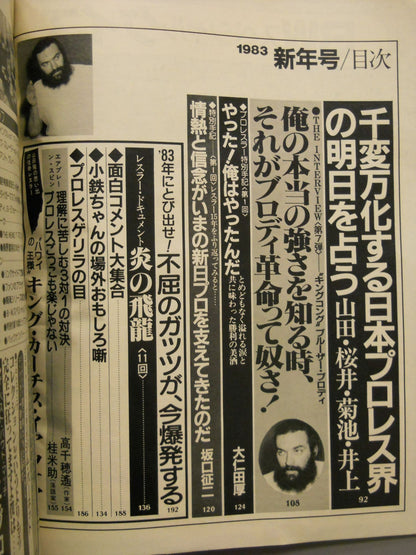 1983 新年号/目次
千変万化する日本プロレス界
の明日を占う 山田・桜井・菊池・井上
92
●THE INTERVIEW〈第7弾〉 “キングコング”ブルーザー・ブロディ
俺の本当の強さを知る時、
それがブロディ革命って奴さ!
108
●プロレスラー特別手記〈第1回〉
やった!俺はやったんだ
とめどなく溢れる涙と
共に味わった勝利の美酒
大仁田厚
124
●特別手記〈第1回〉レスラー15年をふり返ってみると……
情熱と信念がいまの新日プロを支えてきたのだ
坂口征二
120
'83年にとび出せ!不屈のガッツが、今爆発する
192
レスラー・ドキュメント
炎の飛龍
〈11回〉
136
◆面白コメント大集合
188
◆小鉄ちゃんの場外おもしろ噺
134
◆プロレスゲリラの目
186
エアプレー
ン・スピン
理解に苦しむ3対1の対決
高千穂遙(作家)
154
プロレスどっちも楽しゃない
桂米助(落語家)
155
ハワイ
の王者
キング・カーチス・イヤウケア